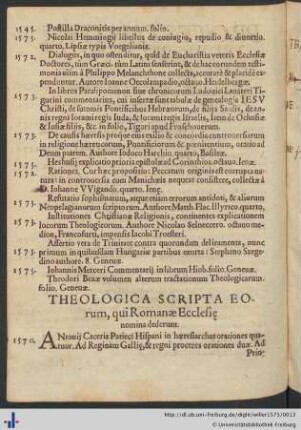 1545. Postilla Draconitis per annum. folio.
1573. Nicolai Hemmingij libellus de coniugio, repudio & diuortio.
quarto. Lipsiæ typis Voegelianis.
1572. Dialogus, in quo ostenditur, quid de Eucharistia veteris Ecclesiæ
Doctores, tùm Græci, tùm Latini senserint, & de hac eorundem testi-
monia aliàs à Philippo Melanchthone collecta, & placidè ex-
penduntur. Autore Ioanne Oecolampadio. octauo. Heydelbergæ.
In libros Paralipomenon siue chronicorum Ludouici Lauateri Ti-
gurini commentarius, cui insertæ sunt tabulæ de genealogia IESV
1573. Christi, & summis Pontificibus Hebræorum,
regni Iosiæ siliis, &c. in folio, Tiguri apud Froschouerum.
1573. De causis hæresis proque eius exilio & concordia controuersiarum
in religione hæreticorum, Pontificiorum & pœnitentium, oratio ad
Deum patrem. Authore Iodoco Harchio. quarto. Basileæ.
1573. Heshusij explicatio prioris epistolæ ad Corinthios. octauo. Ienæ.
1572. Rationes, Cur hæc propositio: Peccatum originis est corrupta na-
tura: in controuersia cum Manichæis nequeat consistere, collectæ à
D. Iohanne VVigando. quarto. Ienę.
Refutatio sophismatum, atque etiam errorum antidoti, & aliorum
1573. Neopelagianorum scriptorum. Authore Matth. Flac. Illyrico. quarto.
Institutiones Christianæ Religionis, continentes explicationem
1573. locorum Theologicorum. Authore Nicolao Selneccero. octauo me-
dioc. Francofurti, impensis Iacobi Trosferi.
Assertio vera de Trinitate contra quorundam deliramenta, nunc
1573. primum in quibusdam Hungariæ partibus exorta: Stephano Szege-
dino authore. 8. Geneuæ.
1573. Iohannis Merceri Commentarij in librum Hiob. folio. Geneuæ.
Theodori Bezæ volumen alterum tractationum Theologicarum.
folio. Geneuæ.
THEOLOGICA SCRIPTA EO-
rum, qui Romanæ Ecclesię
nomina dederunt.
1570. ANtonij Caceris Patieci Hispani in hæresiarchas orationes qua-
tuor. Ad Reginam Gallię, & regni proceres orationes duæ. Ad
Prin-
http://dl.ub.uni-freiburg.de/diglit/willer1573/0013
© Universitätsbibliothek Freiburg